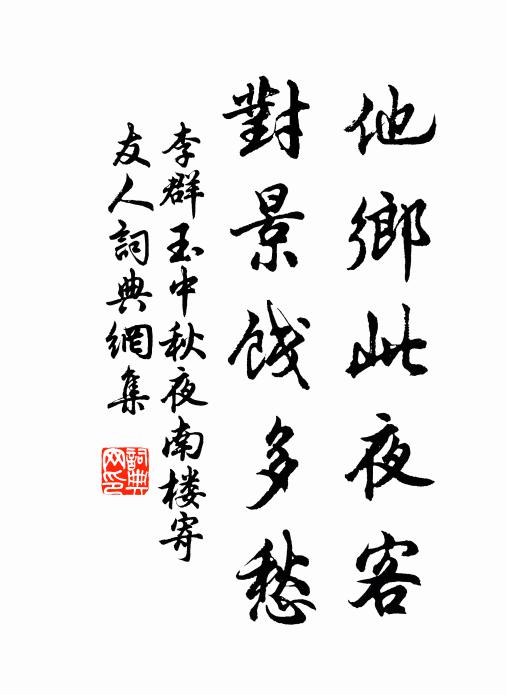 他鄉此夜客
對景餞多愁
李群玉中秋夜南楼寄
友人詞典網集
詞典
网印